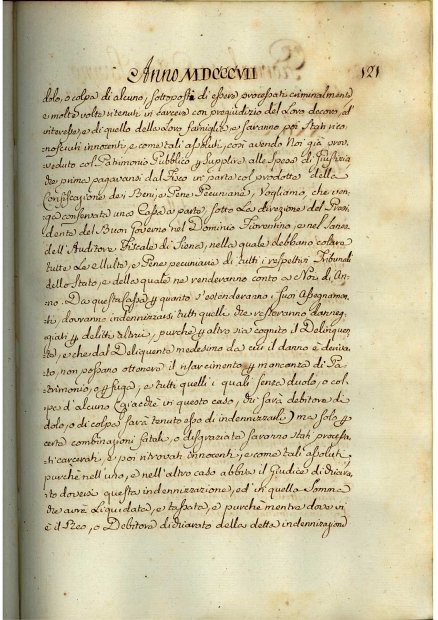 Anno MDCCCVII 121
dolo, o colpa di alcuno, sottoposti di essere processati criminalmente
e molte volte ritenuti in carcere con pregiudizio del Loro decoro, ed
interesse, e di quello delle Loro famiglie, e saranno poi stati rico
nosciuti innocenti, e come tali assoluti, così avendo Noi già prov
veduto col Patrimonio Pubblico per supplire alle spese di Giustizia
che prima pagavansi dal Fisco in parte col prodotto della
Confiscazione dei Beni, e Pene Pecuniarie, Vogliamo, che ven
ga conservata una Cassa a parte, sotto La direzione del Presi
dente del Buon Governo nel Dominio Fiorentino, e nel Sanese
dell'Auditore Fiscale di Siena, nella quale debbano colare
tutte Le Multe, e Pene pecuniarie di tutti i respettivi Tribunali
dello Stato, e della quale ne renderanno conto a Noi di An
no. Da questa Cassa per quanto s'estenderanno i suoi Assegnamen
ti, dovranno indennizzarsi tutti quelli che resteranno danneg
giati per delitti altrui, purchè per altro sia cognito il Delinquen
te, e che dal Delinquente medesimo da cui il danno è deriva
to, non possano ottenere il risarcimento per mancanza di Pa
trimonio, o per fuga, e tutti quelli i quali senza duolo, o col
pa d'alcuno (giacchè in questo caso, chi sarà debitore di
dolo, o di colpa sarà tenuto esso di indennizzarli) ma solo per
certe combinazioni fatali, o disgraziate saranno stati processa
ti carcerati, e poi ritrovati innocenti, e come tali assoluti,
purchè nell'uno, e nell'altro caso abbia il Giudice dichiara
to doversi questa indennizzazione, ed in quella Somma
che avrà Liquidata, e tassata, e purchè mentre dove vi
è il Reo, o Debitore dichiarato della detta indennizazione